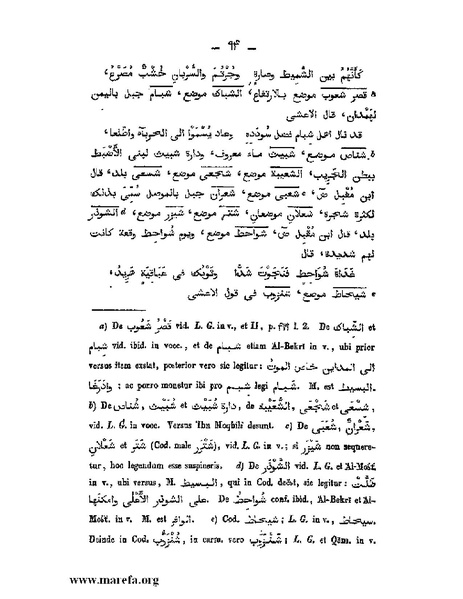 — ٩۴ —
كَأَنَّهُمُ بين الشُّمَيْط وصارةٍ وجُرْثُمَ والسُّوبانِ خُشْبٌ مُصَرَّعُ،
a قصر شعوب موضع بلارتفاع، الشباك موضع، شبام جبل باليمن
لهَمْدان، قال الاعشى
قد نال اهل شبام فضل سودده
b شفاص موضع، شبيث ماء معروف، ودارة شبيث لبنى الأَضْبَط
ببطن الجَريب، الشعيبة موضع، شجعى موضع، شسعى بلد، قال
ابن مُقْبِل ص، c شعبى موضع، شعران جبل بالموصل سُمّى بذلك
لكثرة شجره، شعلان موضعان، شتر موضع، شيزر موضع، d الشوذر
بلد، قال ابن مُقْبِل ص، شواحط موضع، ويوم شُواحِط وقعة كانت
لهم شديدة، قال
غَداةَ شُواحِط فنَجَوْتَ شَدًّا وثَوْبُك فى عَباقِيَةٍ هَرِيدُ،
e شيحاظ موضع، شفروب فى قول الاعشى
a) De قَصْرُ شَعُوب vid. L. G. in v., et II, p. ۴۲۴ l. 2. De الشِّباك et
شبام vid. ibid. in vocc., et de شبام etiam Al-Bekrí in v., ubi prior
versus item exstat, posterior vero sic legitur: الى المدائن خاض الموت
وادّرعا; ac porro monetur ibi pro شبام legi شبام. M. est البسيط.
b) De شفاص, شُبَيْث et دارة شُبَيْث, de الشُّعَيْبة, شجعى et شسعى,
vid. L. G. in vocc. Versus 'Ibn Moqbili desunt. c) De شُعَبَى, شَعْران,
شعلان et شَتَر (Cod. male شتر), vid. L. G. in v.; si شيزر non sequere-
tur, hoc legendum esse suspineris. d) De الشَّوْذَر vid. L. G. et Al-Mošt.
in v., ubi versus, M. البسيط, qui in Cod. deëst, sic legitur: ظَلَّتْ
على الشوذر الأعلى وامكنها. De شُواحِط conf. ibid., Al-Bekrí et Al-
Mošt. in v. M. est الوافر. e) Cod. شيحاظ; L. G. in v., سيحاط.
Deinde in Cod. شفروب, in carm. vero شفروب; L. G. et Qām. in v.
www.marefa.org